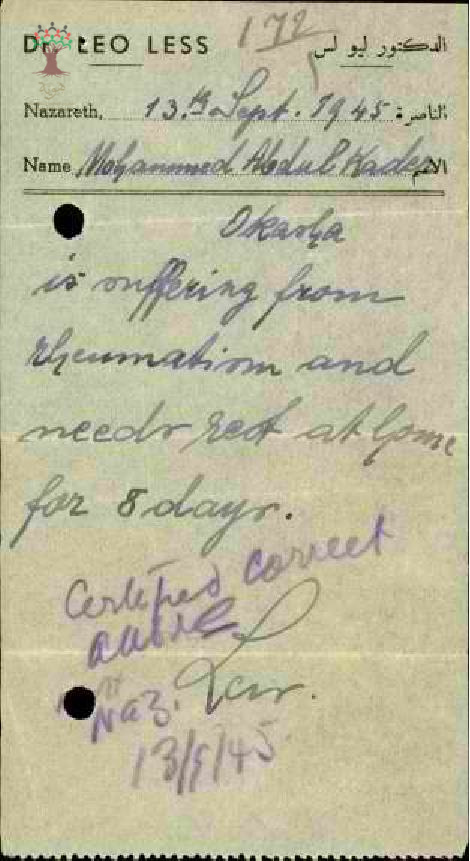 172
DR LEO LESS الدكتور ليو لس
Nazareth, 13.th Sept. 1945 الناصرة:
Name Mohammed Abdul Kader الاسم
Okasha
is suffering from
rheumatism and
needs rest at home
for 8 days.
Certified correct
Less.
Naz.
13/9/45